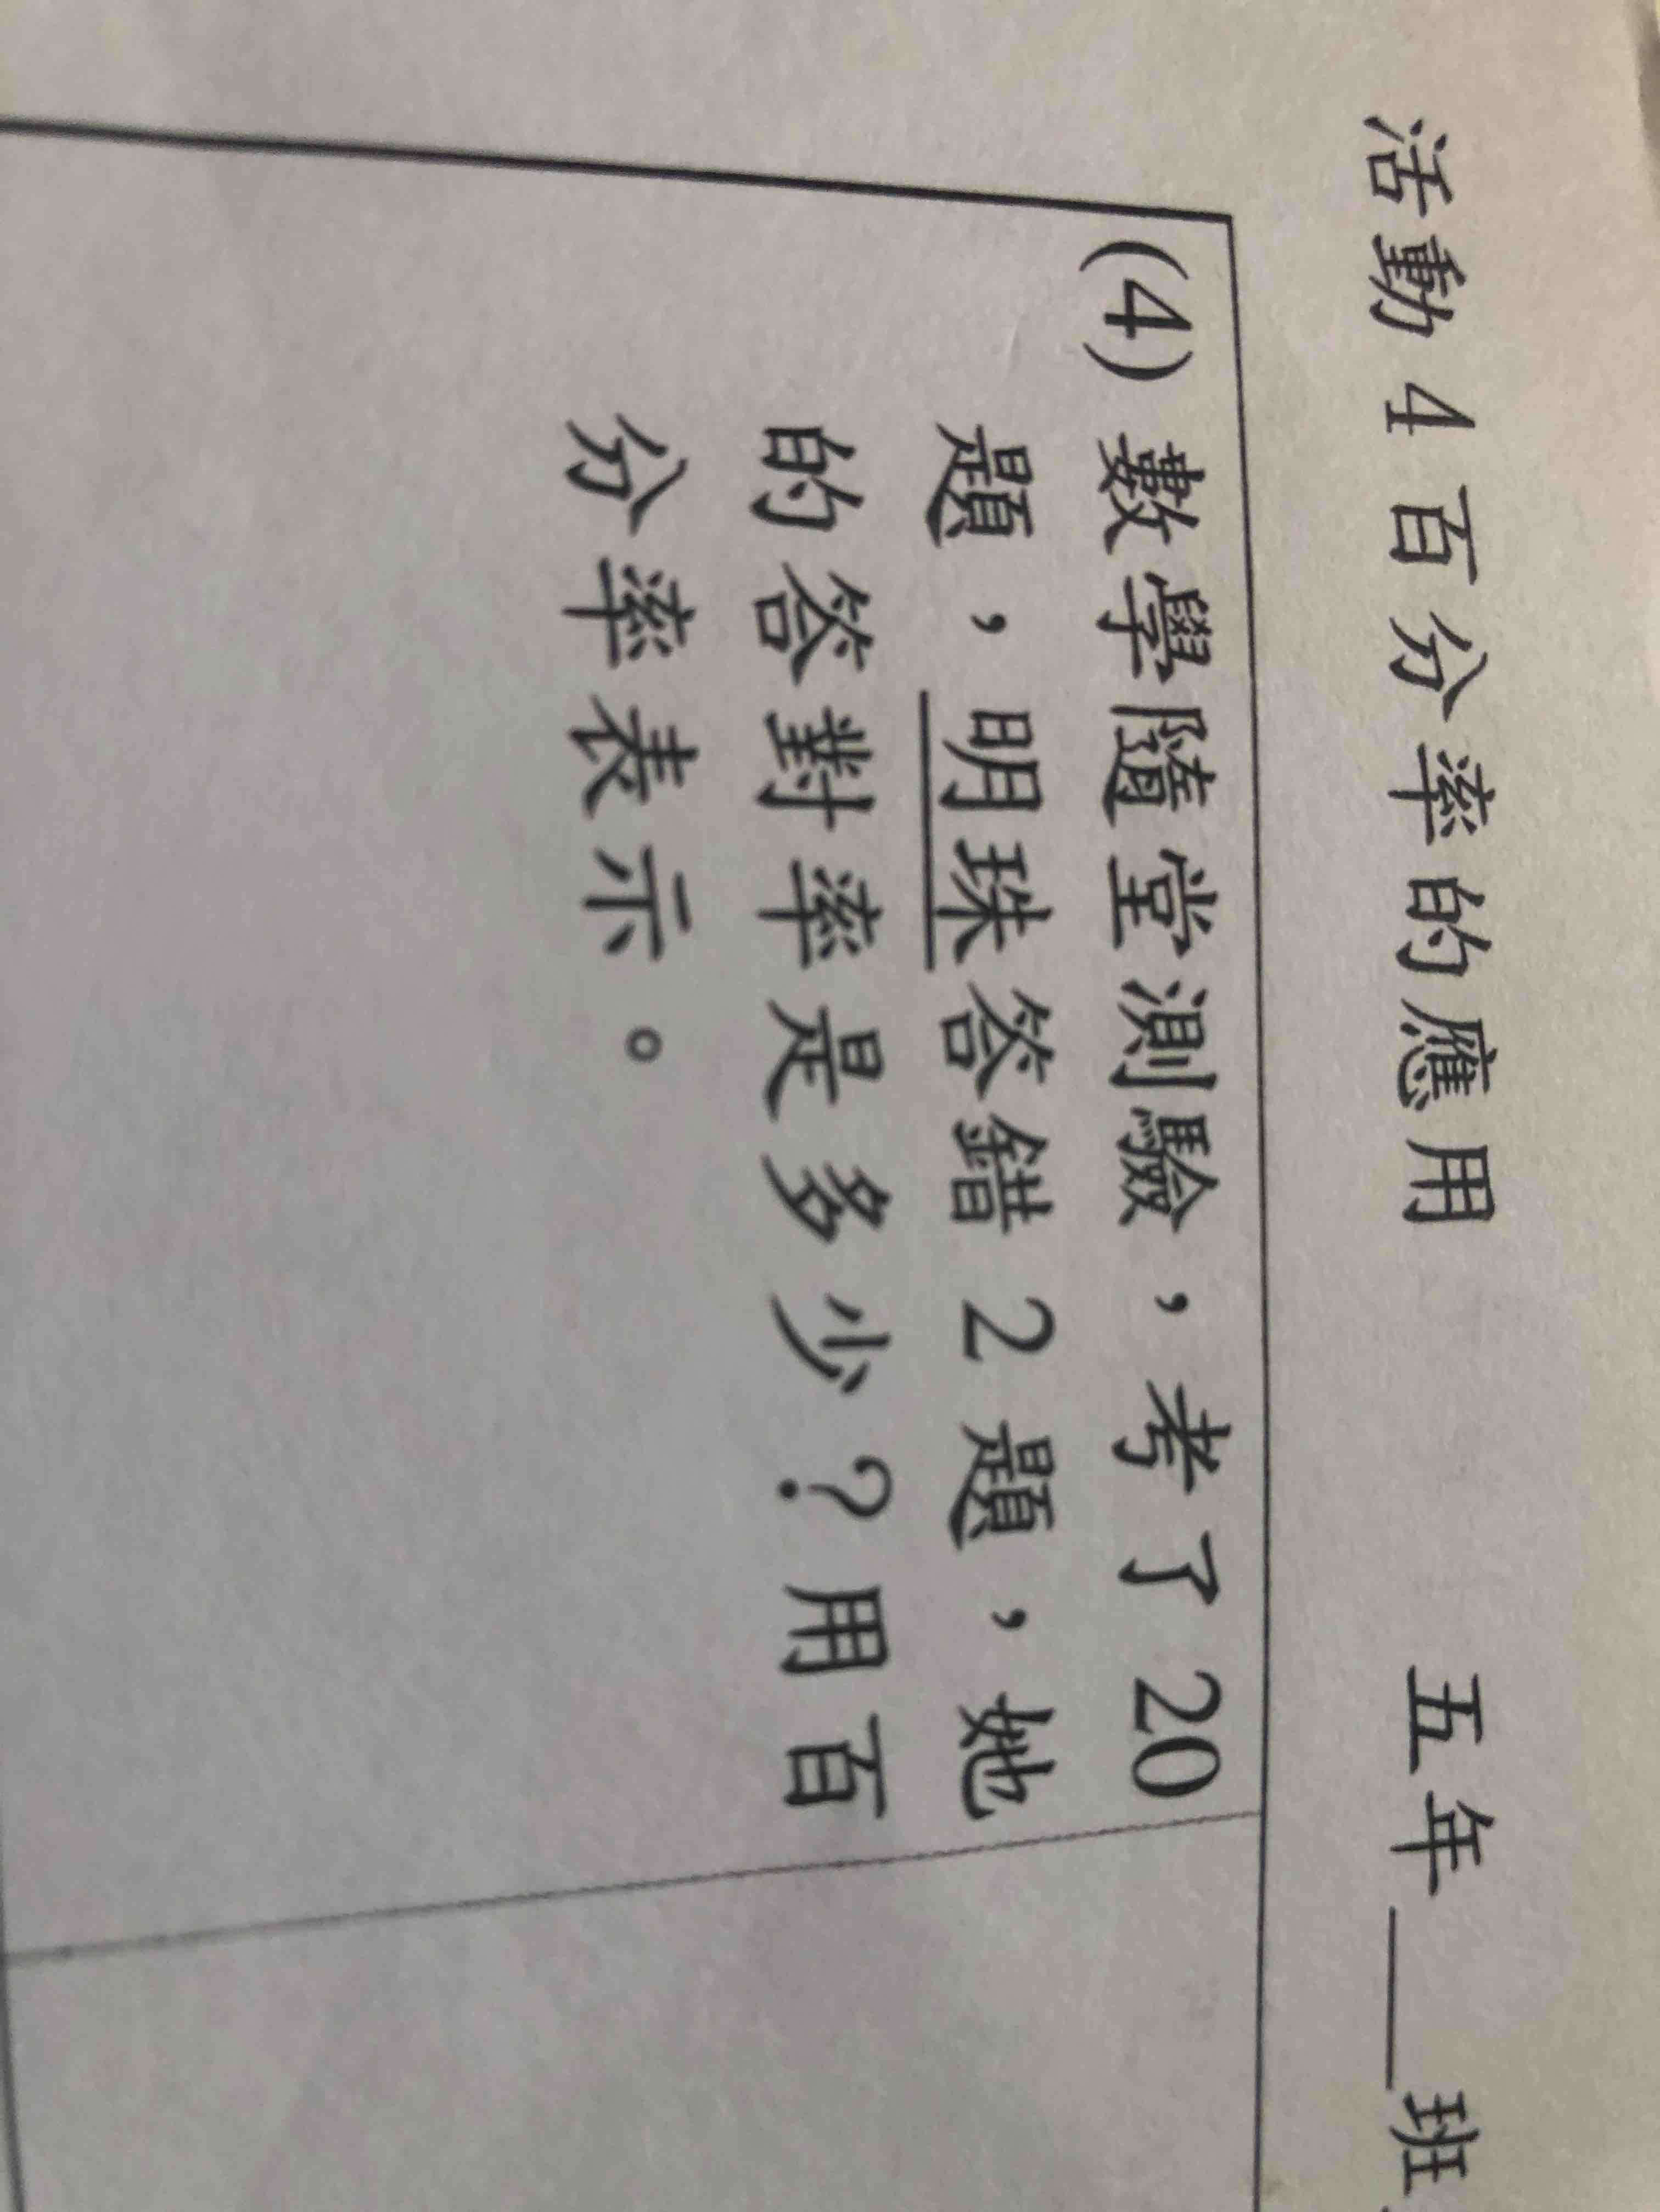 活動4 百分率的應用 五年___班
(4) 數學隨堂測驗，考了 20
題，明珠答錯 2 題，她
的答對率是多少？用百
分率表示。